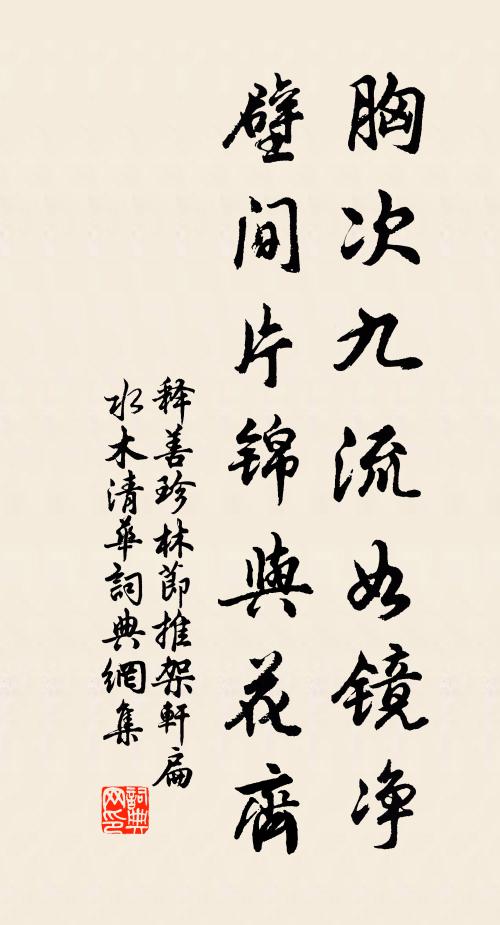 胸次九流如镜净
壁间片锦與花齊
释善珍林節推架軒扁
水木清華詞典網集
詞典
网印